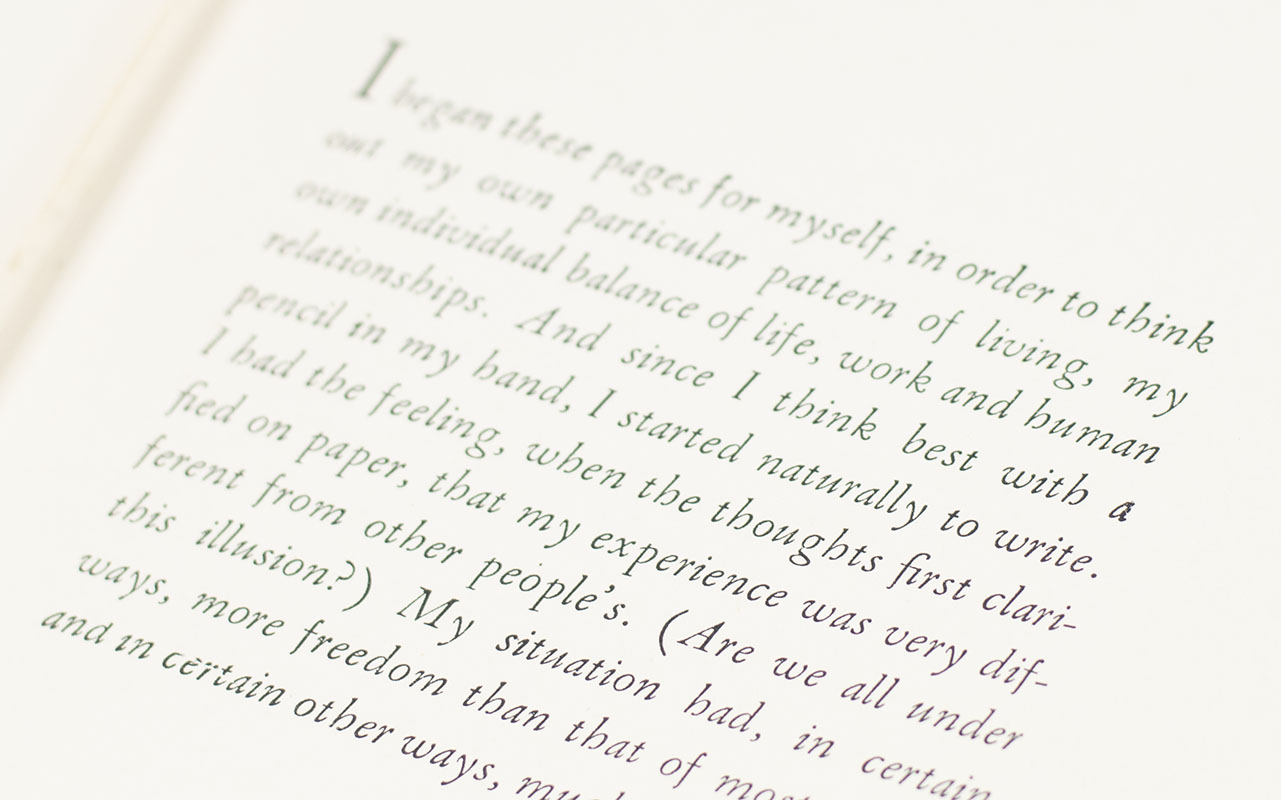 I began these pages for myself, in order to think
out my own particular pattern of living, my
own individual balance of life, work and human
relationships. And since I think best with a
pencil in my hand, I started naturally to write.
I had the feeling, when the thoughts first clari-
fied on paper, that my experience was very dif-
ferent from other people's. (Are we all under
this illusion?) My situation had, in certain
ways, more freedom than that of most
and in certain other ways,